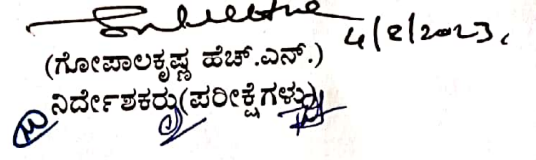 4/8/2023.
(ಗೋಪಾಲಕೃಷ್ಣ ಹೆಚ್.ಎನ್.)
ನಿರ್ದೇಶಕರು(ಪರೀಕ್ಷೆಗಳು)